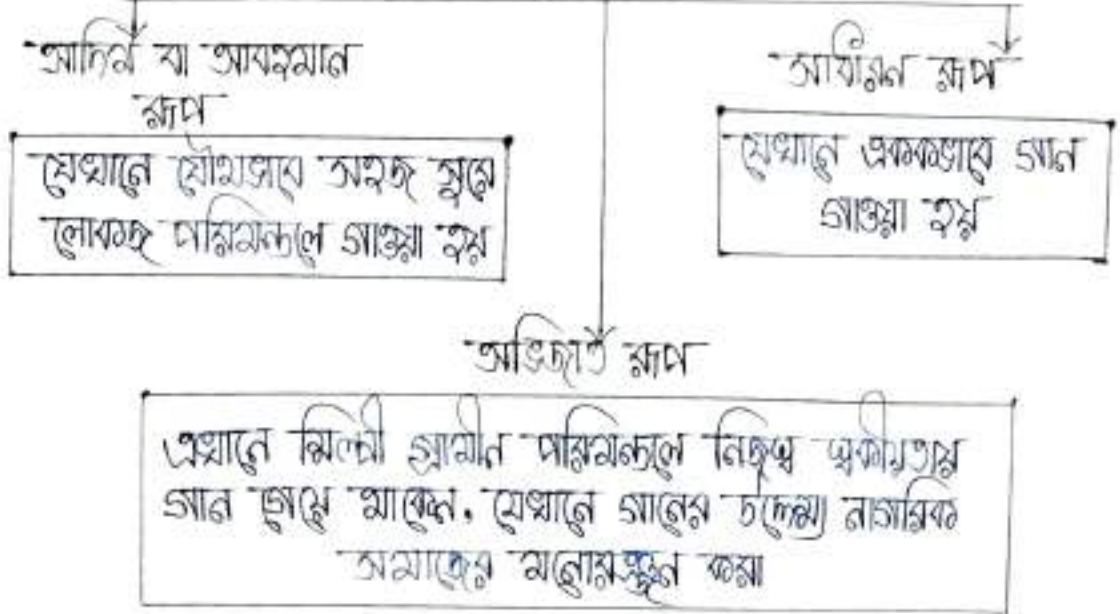 আদিম বা আবহমান
রূপ
যেখানে যৌথভাবে সহজ সুরে
লোকজ পরিমন্ডলে গাওয়া হয়
সাধারন রূপ
যেখানে এককভাবে গান
গাওয়া হয়
অভিজাত রূপ
এখানে শিল্পী গ্রামীন পরিমন্ডলে নিজস্ব স্বকীয়তায়
গান গেয়ে থাকেন, যেখানে গানের উদ্দেশ্য নাগরিক
সমাজের মনোরঞ্জন করা